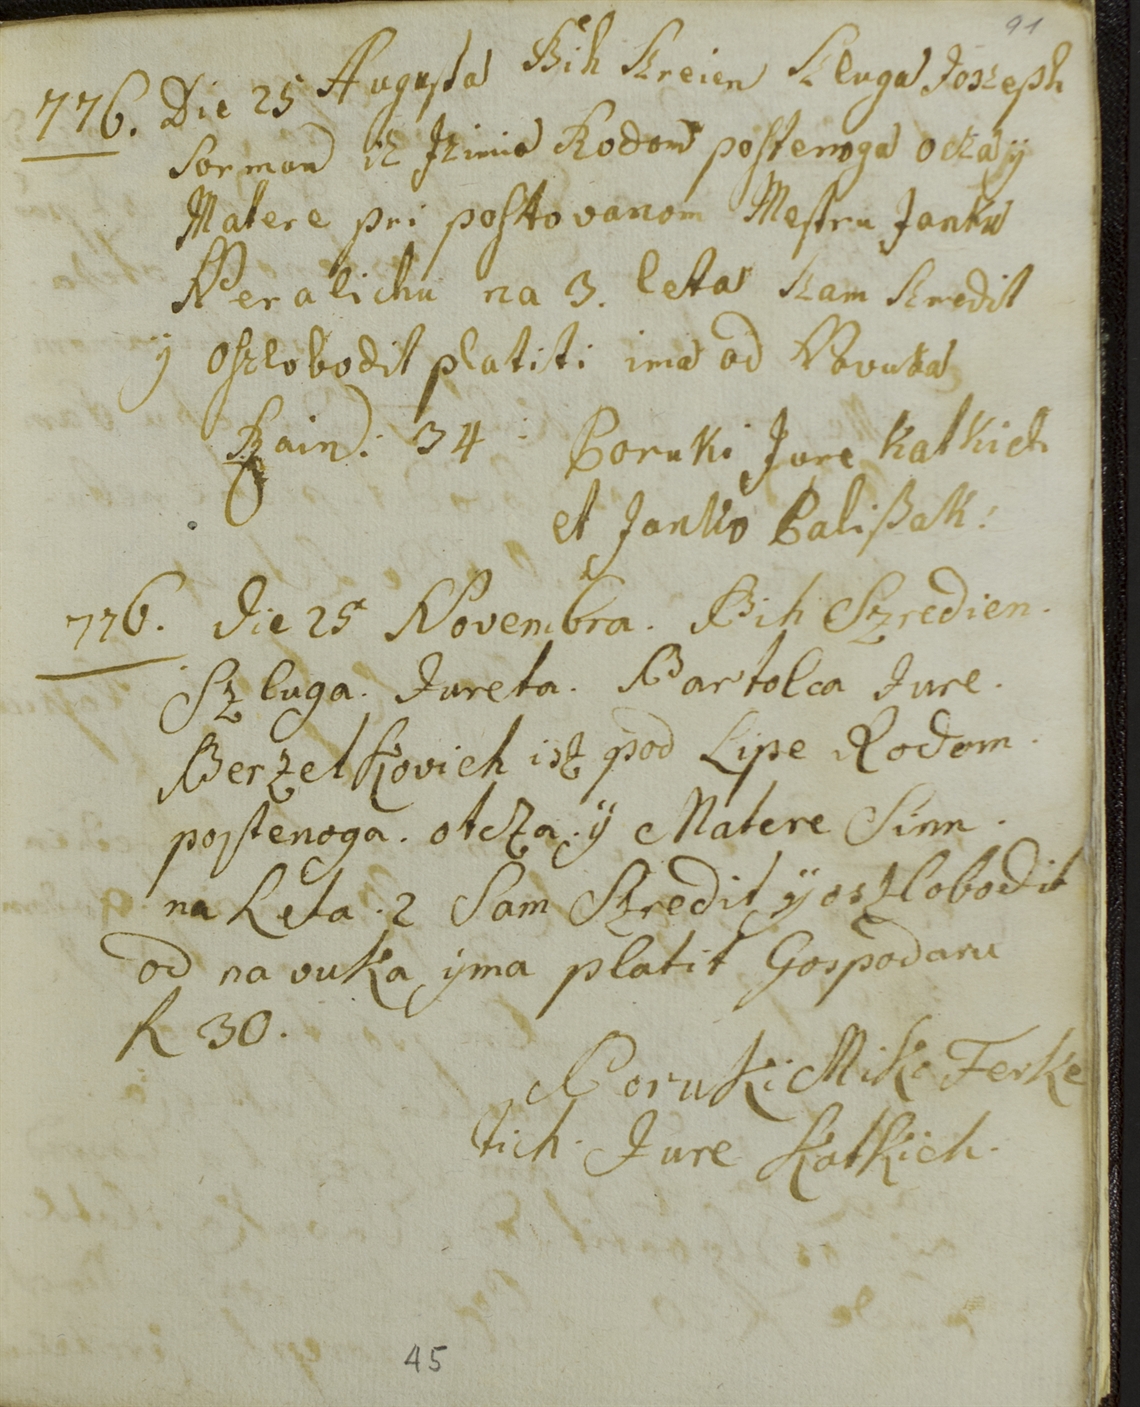 91
776. Die 25 Augusta Bih Skreien Sluga Joszeph
Sorman iz Izimia Rodom postenoga ocza ÿ
Matere pri postovanom Mestru Janku
Peralichu na 3. leta szam szredit
ÿ oszlobodit platiti ima od Navuka
Rain: 34 : Poruki Jure Katkich
et Janko Palißak:
776. Die 25 Novembra. Bih Szredien.
Szluga. Jureta. Bartolca Jure.
Berzetkovich isz pod Lipe Rodom.
postenoga. otcza. ÿ Matere Sinn.
na Leta. 2 Sam Szredit ÿ oszlobodit
od na vuka ÿma platit Gospodaru
R 30.
Poruki Miko Ferke
tich. Jure Katkich.
45